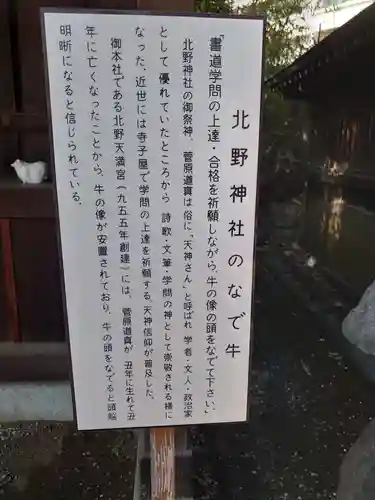 北野神社のなで牛
「書道学問の上達・合格を祈願しながら、牛の像の頭をなでて下さい。」
北野神社の御祭神、菅原道真は俗に、「天神さん」と呼ばれ 学者・文人・政治家
として 優れていたところから 詩歌・文筆・学問の神として崇敬される様に
なった。近世には寺子屋で学問の上達を祈願する、天神信仰が普及した。
御本社である北野天満宮(九五五年創建)には、菅原道真が 丑年に生れて丑
年に亡くなったことから、牛の像が安置されており、牛の頭をなでると頭脳
明晰になると信じられている。